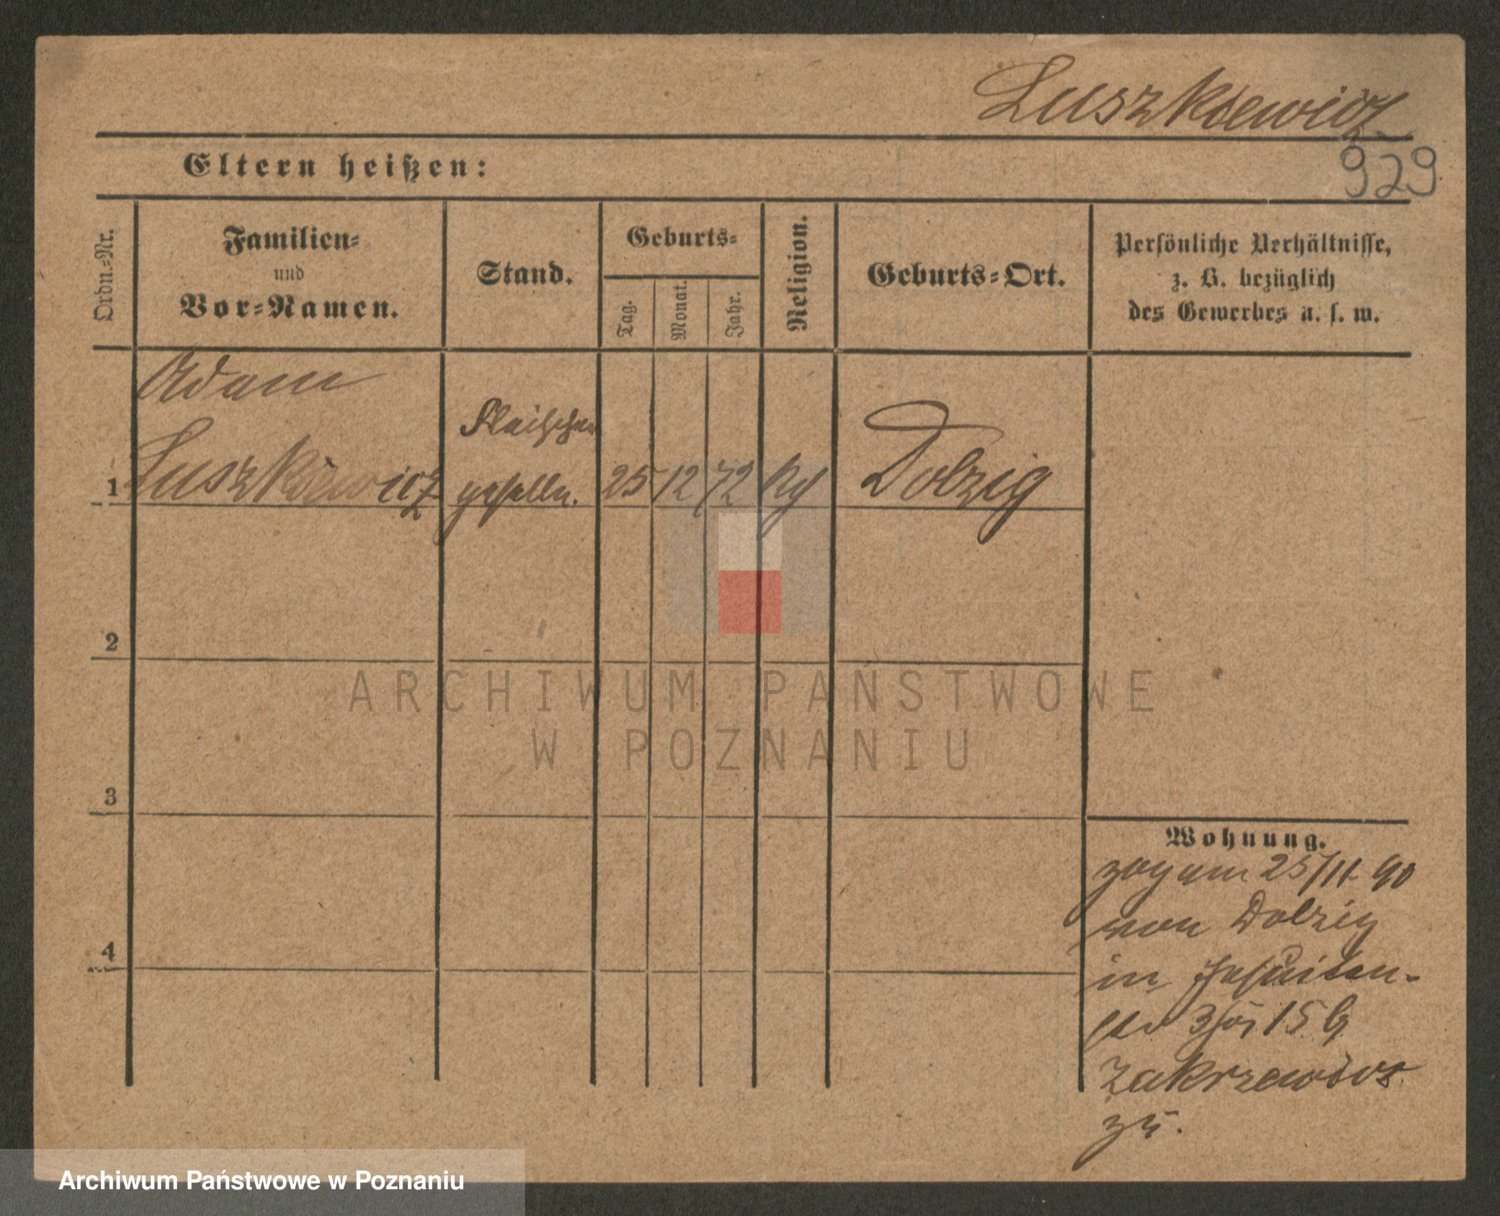 Luszkiewicz
929
Eltern heißen:
Ordn.-Nr.
Familien-
und
Vor-Namen.
Stand.
Geburts-
Tag.
Monat.
Jahr.
Religion.
Geburts-Ort.
Persönliche Verhältnisse,
z. B. bezüglich
des Gewerbes u. s. w.
Adam
Fleischer
1 Luszkiewicz geselle. 25 12 72 Dolzig
2
3
4
Wohnung.
zog am 25/11 90
von Dolzig
in Jesuiten-
str 15
zu.
ARCHIWUM PAŃSTWOWE
W POZNANIU
Archiwum Państwowe w Poznaniu